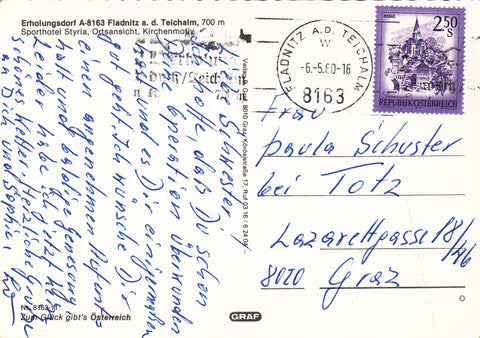 Erholungsdorf A-8163 Fladnitz a. d. Teichalm, 700 m
Sporthotel Styria, Ortsansicht, Kirchenmotiv
Schwester!
hoffe, daß Du schon
Operation überwunden
und es Dir einigermaßen
gut geht. Ich wünsche Dir
einen angenehmen Aufent-
halt und baldige Genesung.
Leider habe ich jetzt kein
schönes Wetter. Herzliche Grüße
an Dich und Sophie.
Nr. 8163-1
Zum Glück gibt's Österreich
GRAF
Verlag Graf, 8010 Graz, Körblergasse 17, Ruf 03 16 / 6 24 04
FLADNITZ A.D. TEICHALM
W
-6.-5.80-16
8163
MURAU
2.50
S
REPUBLIK ÖSTERREICH
Frau
Paula Schuster
bei Totz
Lazarettgasse 18/
46
8020 Graz